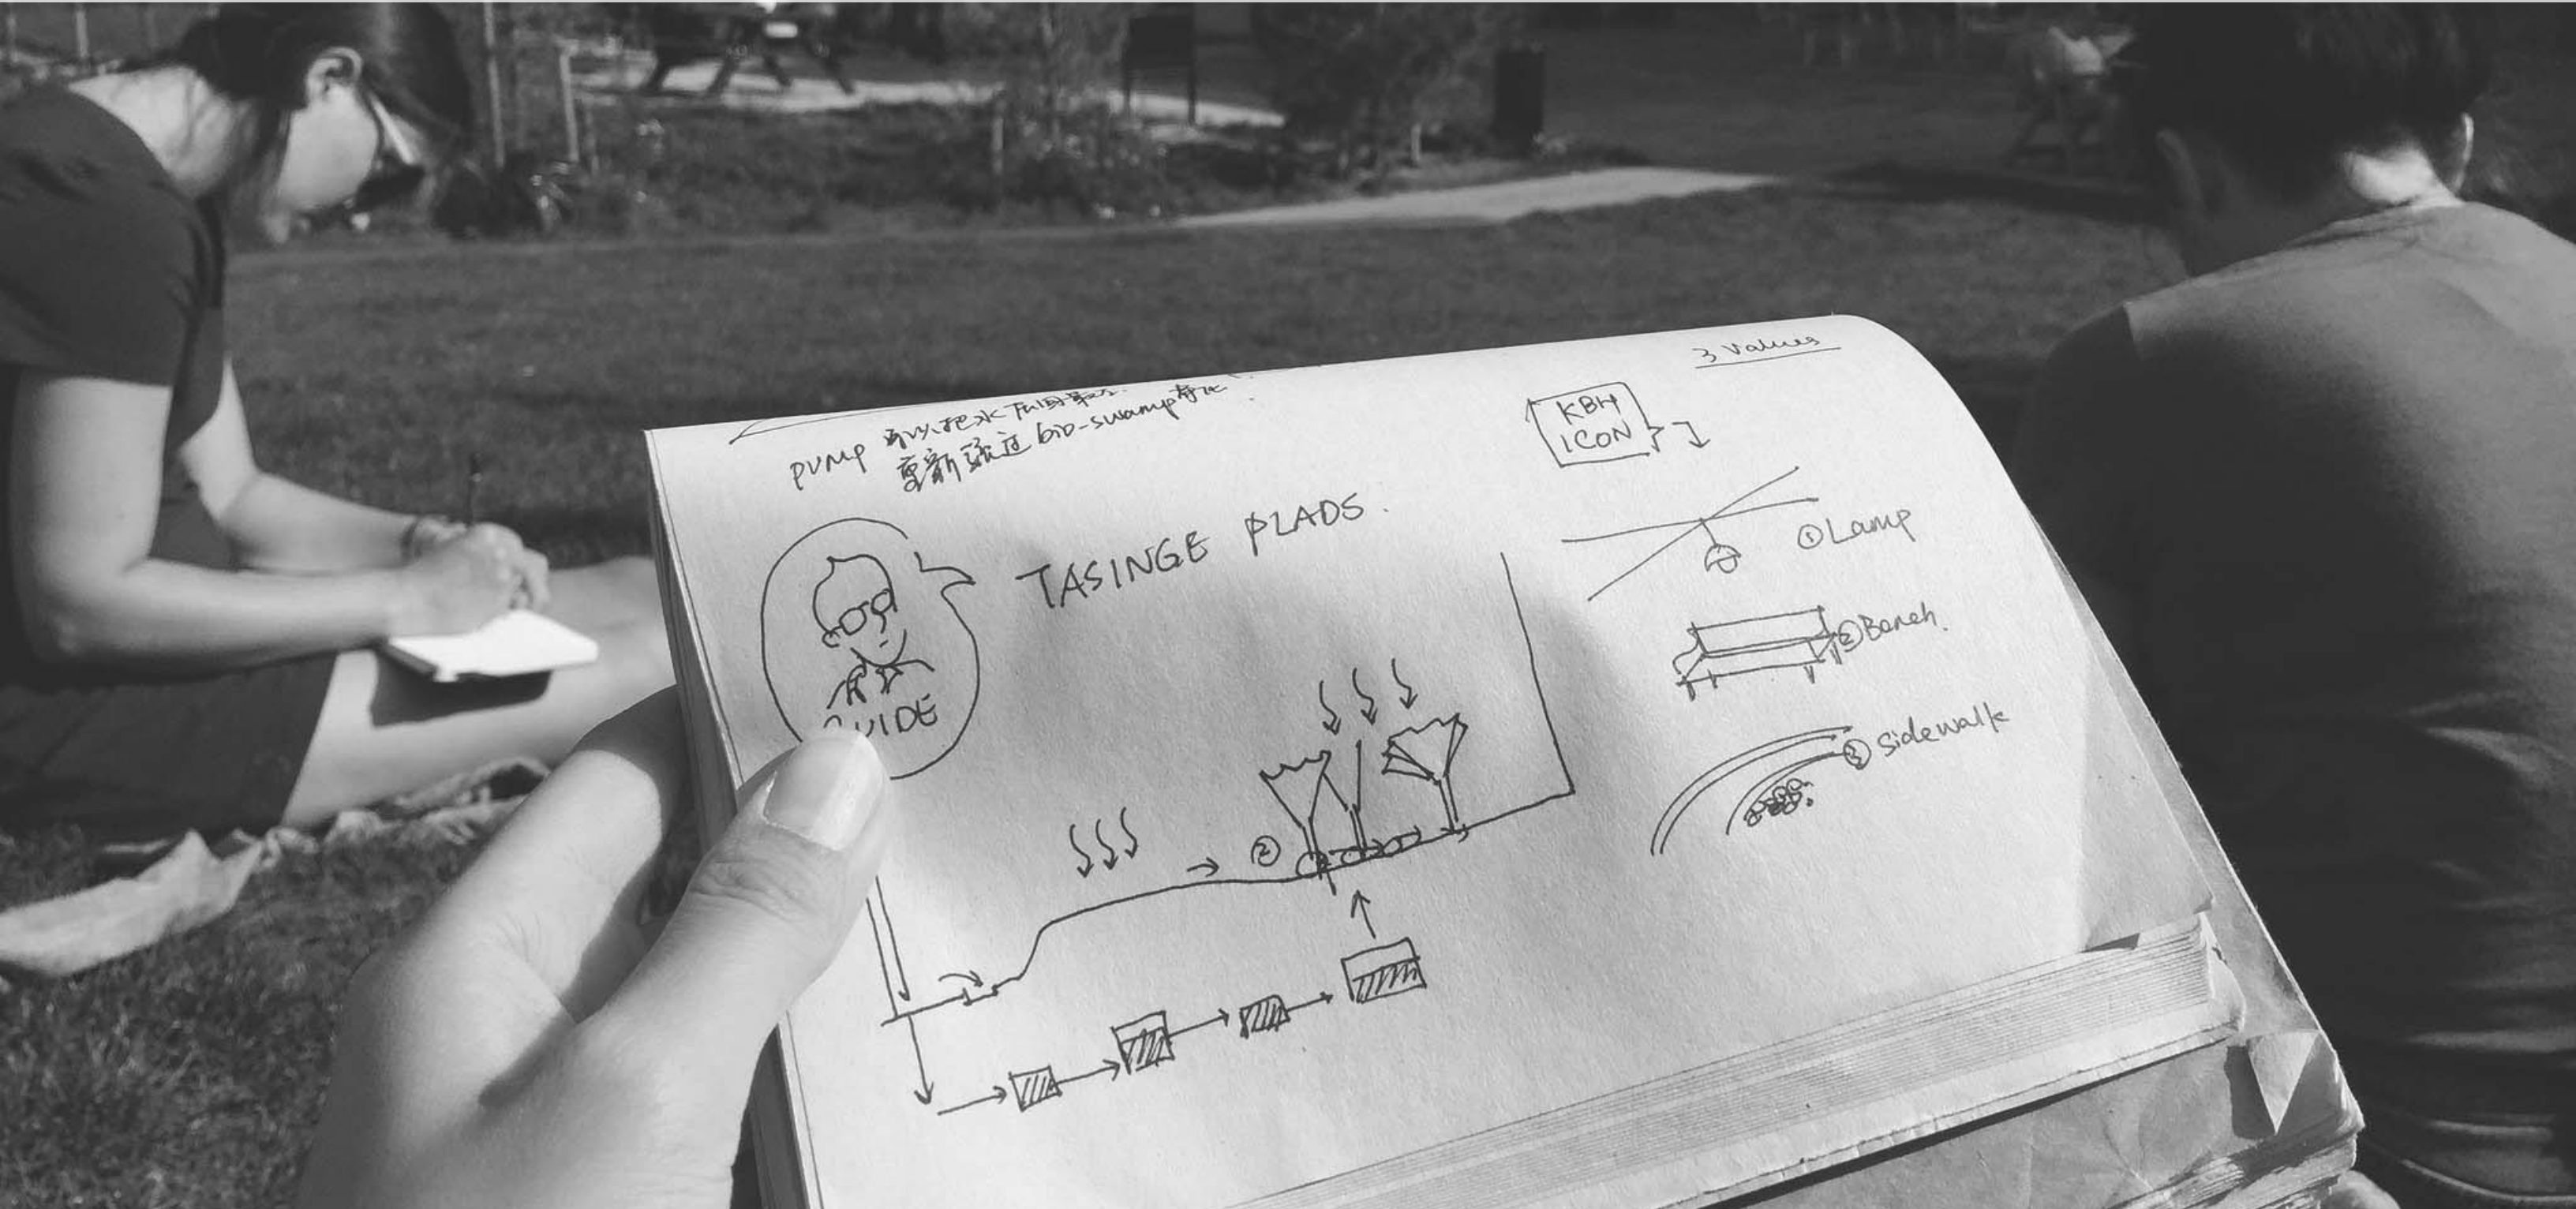 3 values
pump 可以把水
重新流过 bio-swamp 净化
KBH
ICON
TASINGE PLADS.
① Lamp
② Bench.
③ Sidewalk
UIDE
②